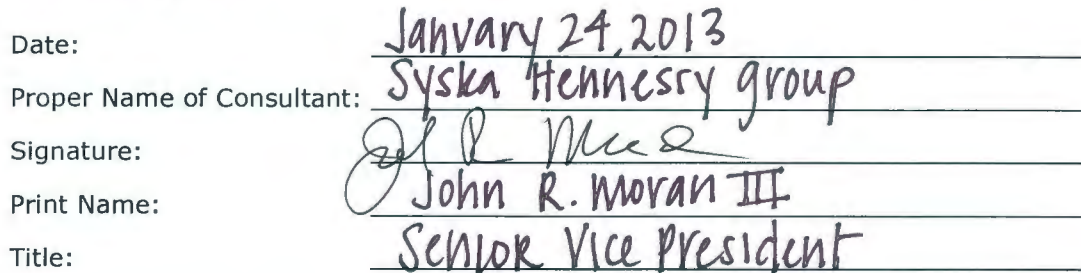 Date: January 24, 2013
Proper Name of Consultant: Syska Hennesry group
Signature:
Print Name: John R. Moran III
Title: Senior Vice President